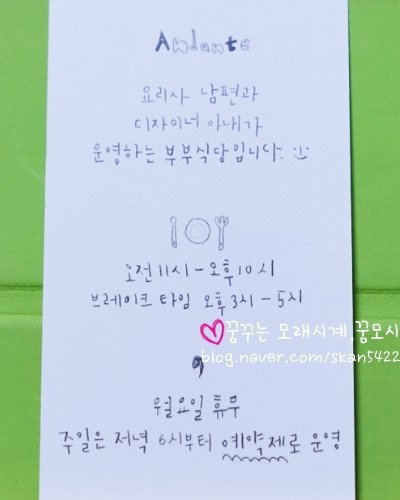 Andante
요리사 남편과
디자이너 아내가
운영하는 부부식당입니다. :)
오전 11시 - 오후 10시
브레이크 타임 오후 3시 - 5시
꿈꾸는 모래시계,꿈모시
blog.naver.com/skan5422
월요일 휴무
주일은 저녁 6시부터 예약제로 운영